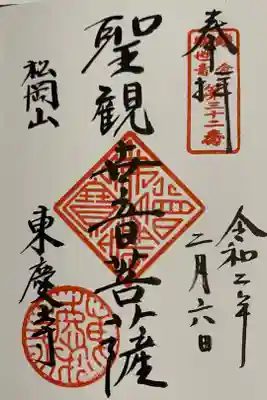 奉拝
第三十二番
聖観世音菩薩
松岡山
東慶寺
令和二年
二月六日